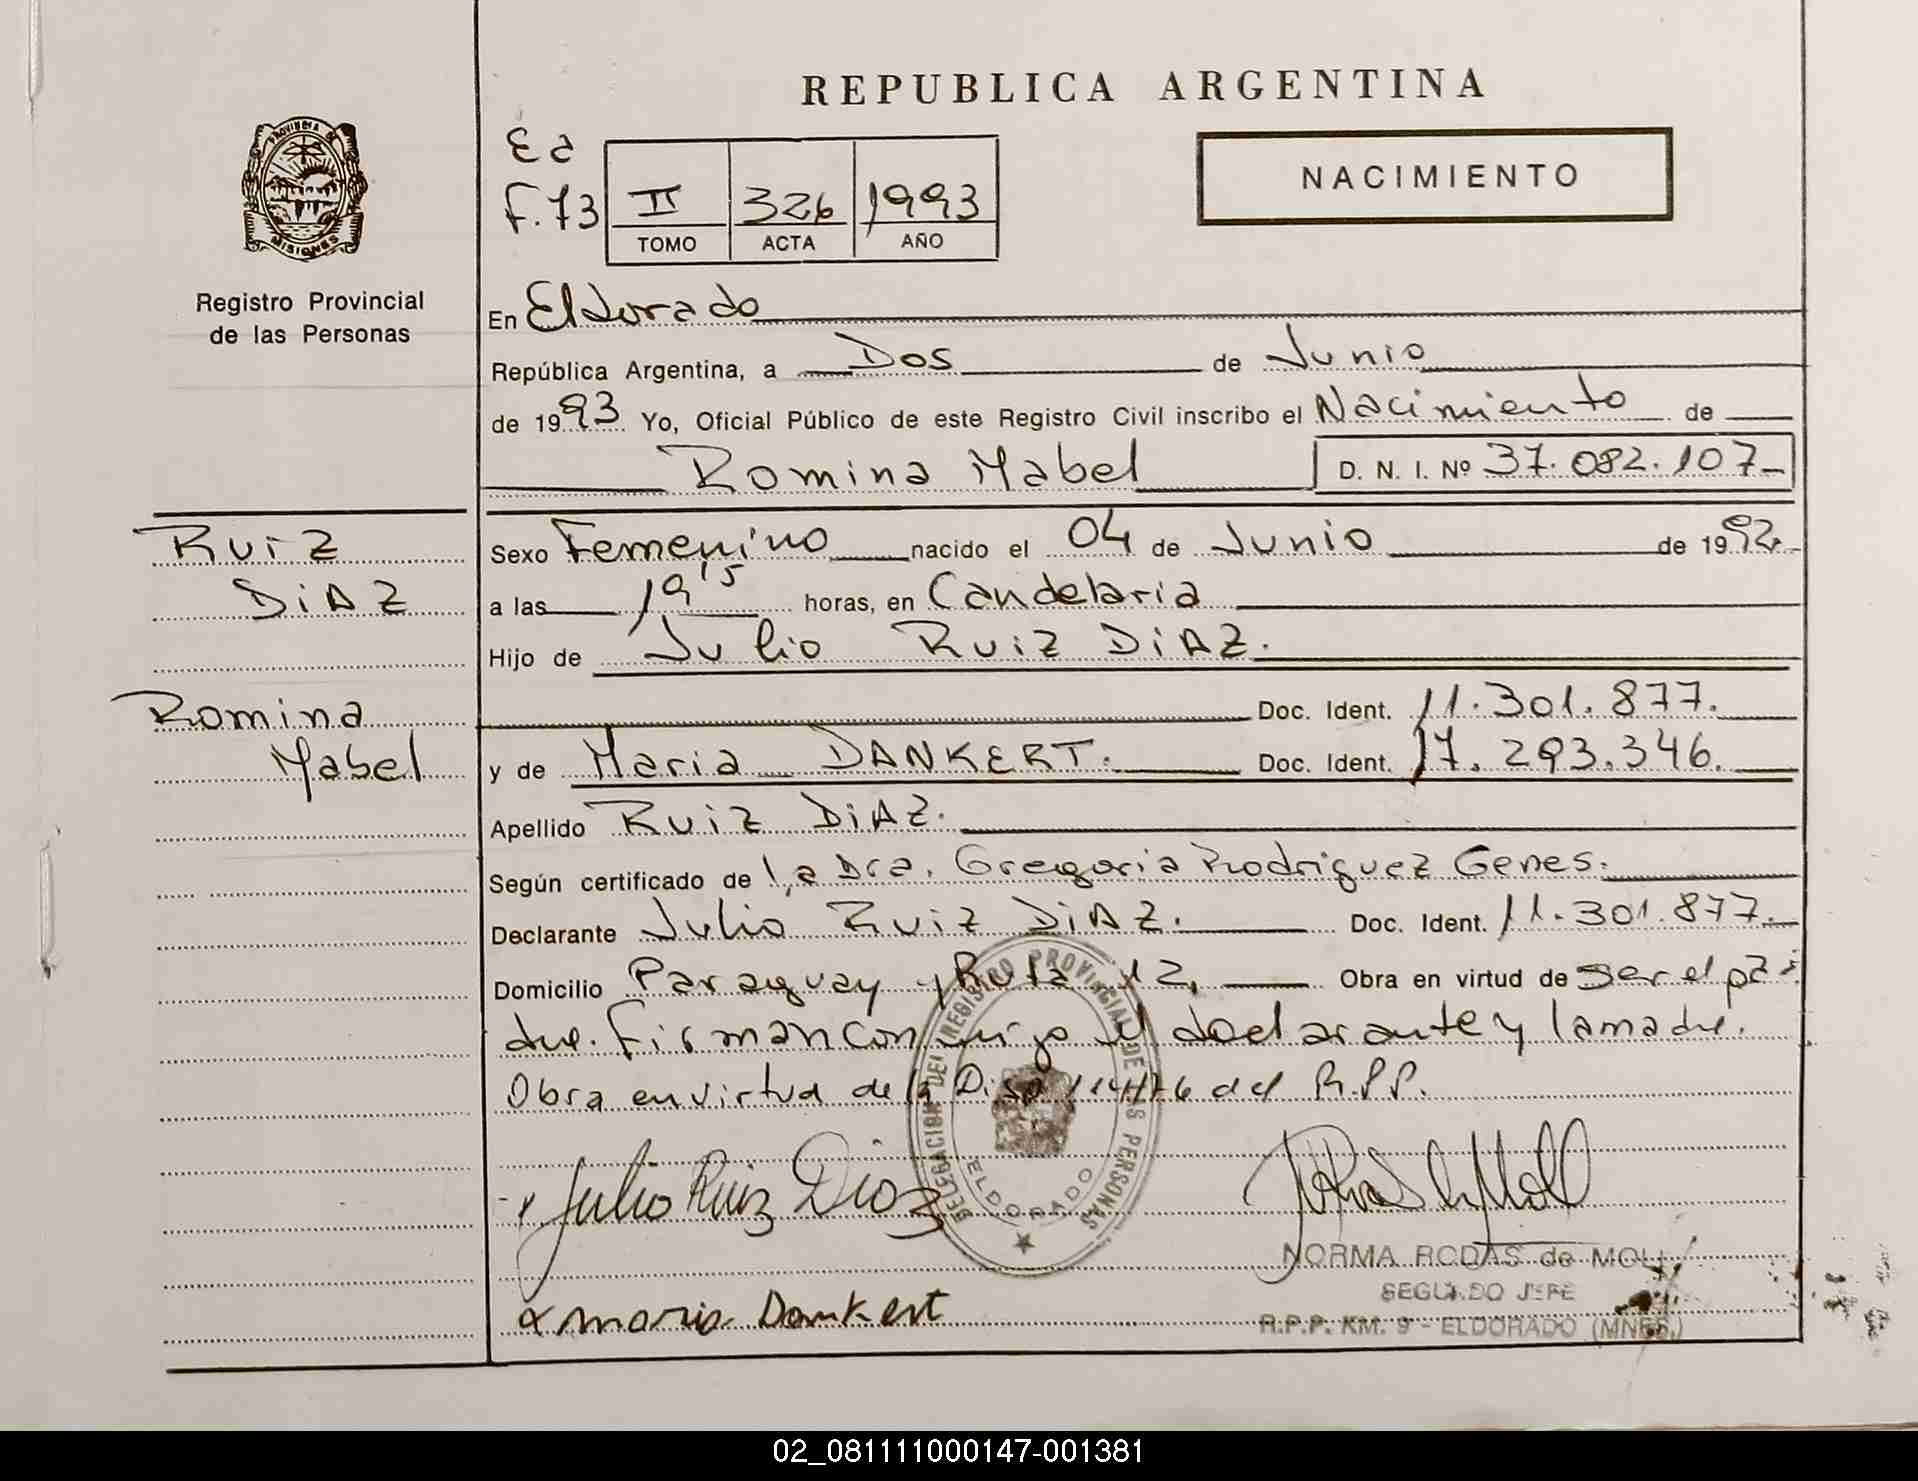 REPUBLICA ARGENTINA
PROVINCIA DE
MISIONES
Registro Provincial
de las Personas
Ea
F.73
II 326 1993
TOMO ACTA AÑO
NACIMIENTO
En Eldorado
República Argentina, a Dos de Junio
de 1993 Yo, Oficial Público de este Registro Civil inscribo el Nacimiento de
Romina Mabel D. N. I. Nº 37.082.107
Ruiz
Sexo Femenino nacido el 04 de Junio de 1992
DiAZ
a las 19 15 horas, en Candelaria
Hijo de Julio Ruiz DiAZ.
Romina
Doc. Ident. 11.301.877.
Mabel
y de Maria DANKERT. Doc. Ident. 17.293.346.
Apellido Ruiz DiAZ.
Según certificado de la Dra. Gregoria Rodriguez Genes.
Declarante Julio Ruiz DiAZ. Doc. Ident. 11.301.877.
Domicilio Paraguay y Ruta 12, Obra en virtud de ser el pa
dre. Firman conmigo el declarante y la madre.
Obra en virtud de la Disp 114/76 del R.P.P.
DELEGACION DEL REGISTRO PROVINCIAL DE LAS PERSONAS
ELDORADO
Julio Ruiz Diaz
NORMA RODAS de MOLL
SEGUNDO JEFE
x maria Dankert
R.P.P. KM. 9 - ELDORADO (MNES.)
02_081111000147-001381